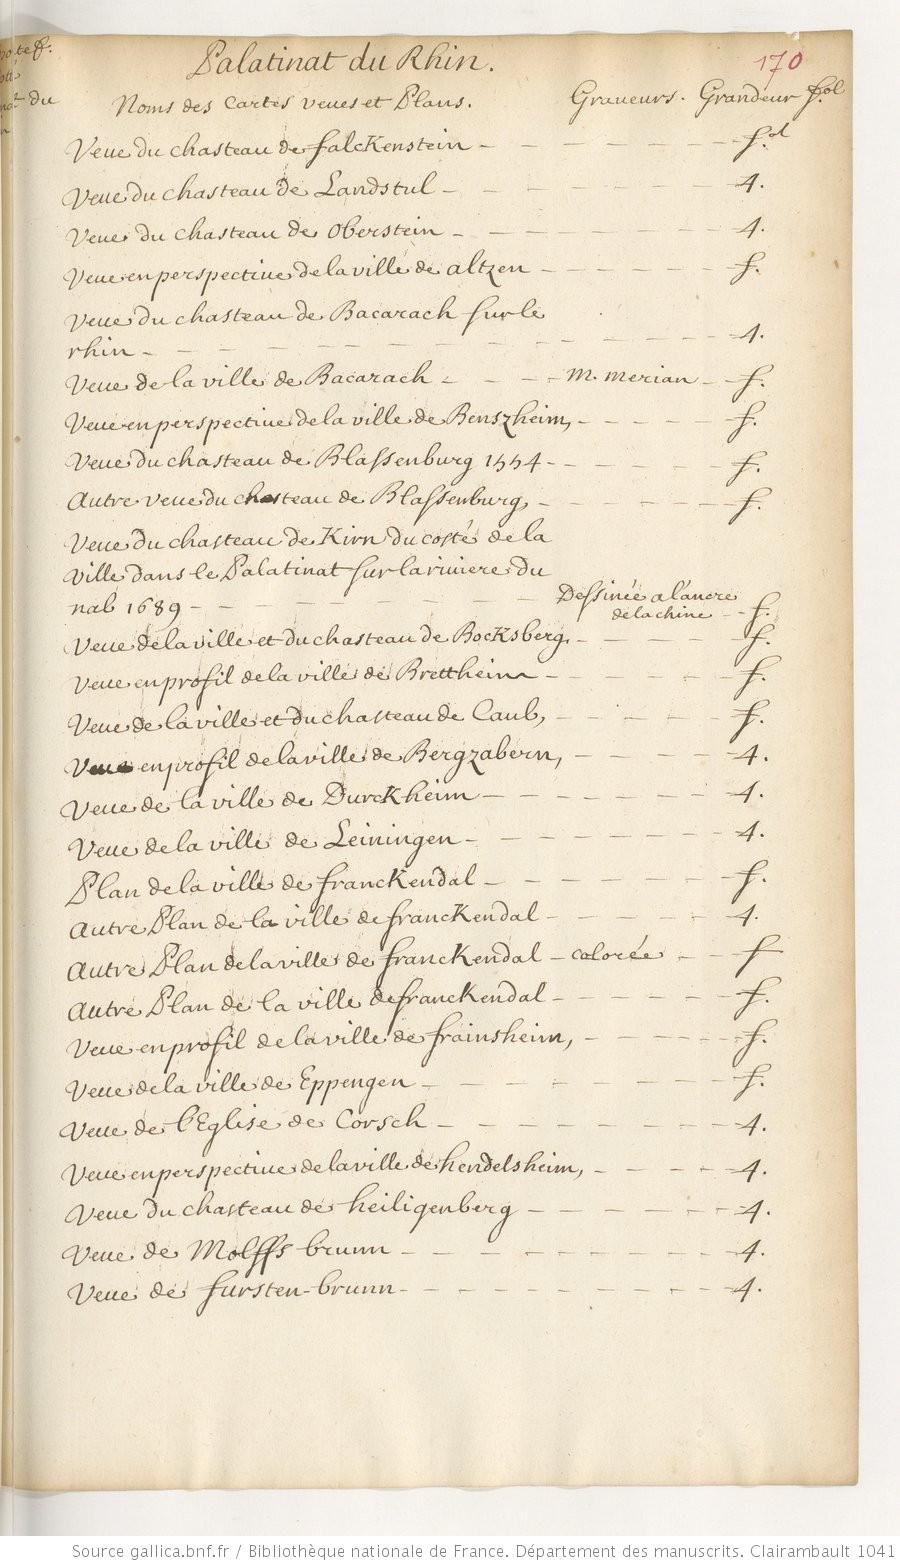 Palatinat du Rhin.
170
Noms des Cartes veües et Plans. Graueurs. Grandeur fol
Veue du chasteau de falckenstein - - - - - - - f.ol
Veue du chasteau de Landstul - - - - - - - 4.
Veue du chasteau de Oberstein - - - - - - - 4.
Veue en perspectiue de la ville de altzen - - - - - - f.
Veue du chasteau de Bacarach sur le
rhin - - - - - - - - - - - 4.
Veue de la ville de Bacarach - - - - M. Merian - - f.
Veue en perspectiue de la ville de Benszheim, - - - - - f.
Veue du chasteau de Blassenburg 1554 - - - - - - f.
Autre veue du chasteau de Blassenburg, - - - - - - f.
Veue du chasteau de Kirn du costé de la
ville dans le Palatinat sur la riuiere du
nab 1689 - - - - - - - Dessinée a l'ancre
de la chine - - f.
Veue de la ville et du chasteau de Bocksberg, - - - - - f.
Veue en profil de la ville de Brettheim - - - - - - f.
Veue de la ville et du chasteau de Caub, - - - - - f.
Veue en profil de la ville de Bergzabern, - - - - - 4.
Veue de la ville de Durckheim - - - - - - - 4.
Veue de la ville de Leiningen - - - - - - - 4.
Plan de la ville de franckendal - - - - - - - f.
Autre Plan de la ville de franckendal - - - - - - 4.
Autre Plan de la ville de franckendal - colorée - - f
Autre Plan de la ville de franckendal - - - - - - f.
Veue en profil de la ville de frainsheim, - - - - - f.
Veue de la ville de Eppengen - - - - - - - f.
Veue de l'Eglise de Corsch - - - - - - - 4.
Veue en perspectiue de la ville de hendelsheim, - - - - 4.
Veue du chasteau de heiligenberg - - - - - - 4.
Veue de Molffs brunn - - - - - - - - 4.
Veue de fursten-brunn - - - - - - - - 4.
Source gallica.bnf.fr / Bibliothèque nationale de France. Département des manuscrits. Clairambault 1041